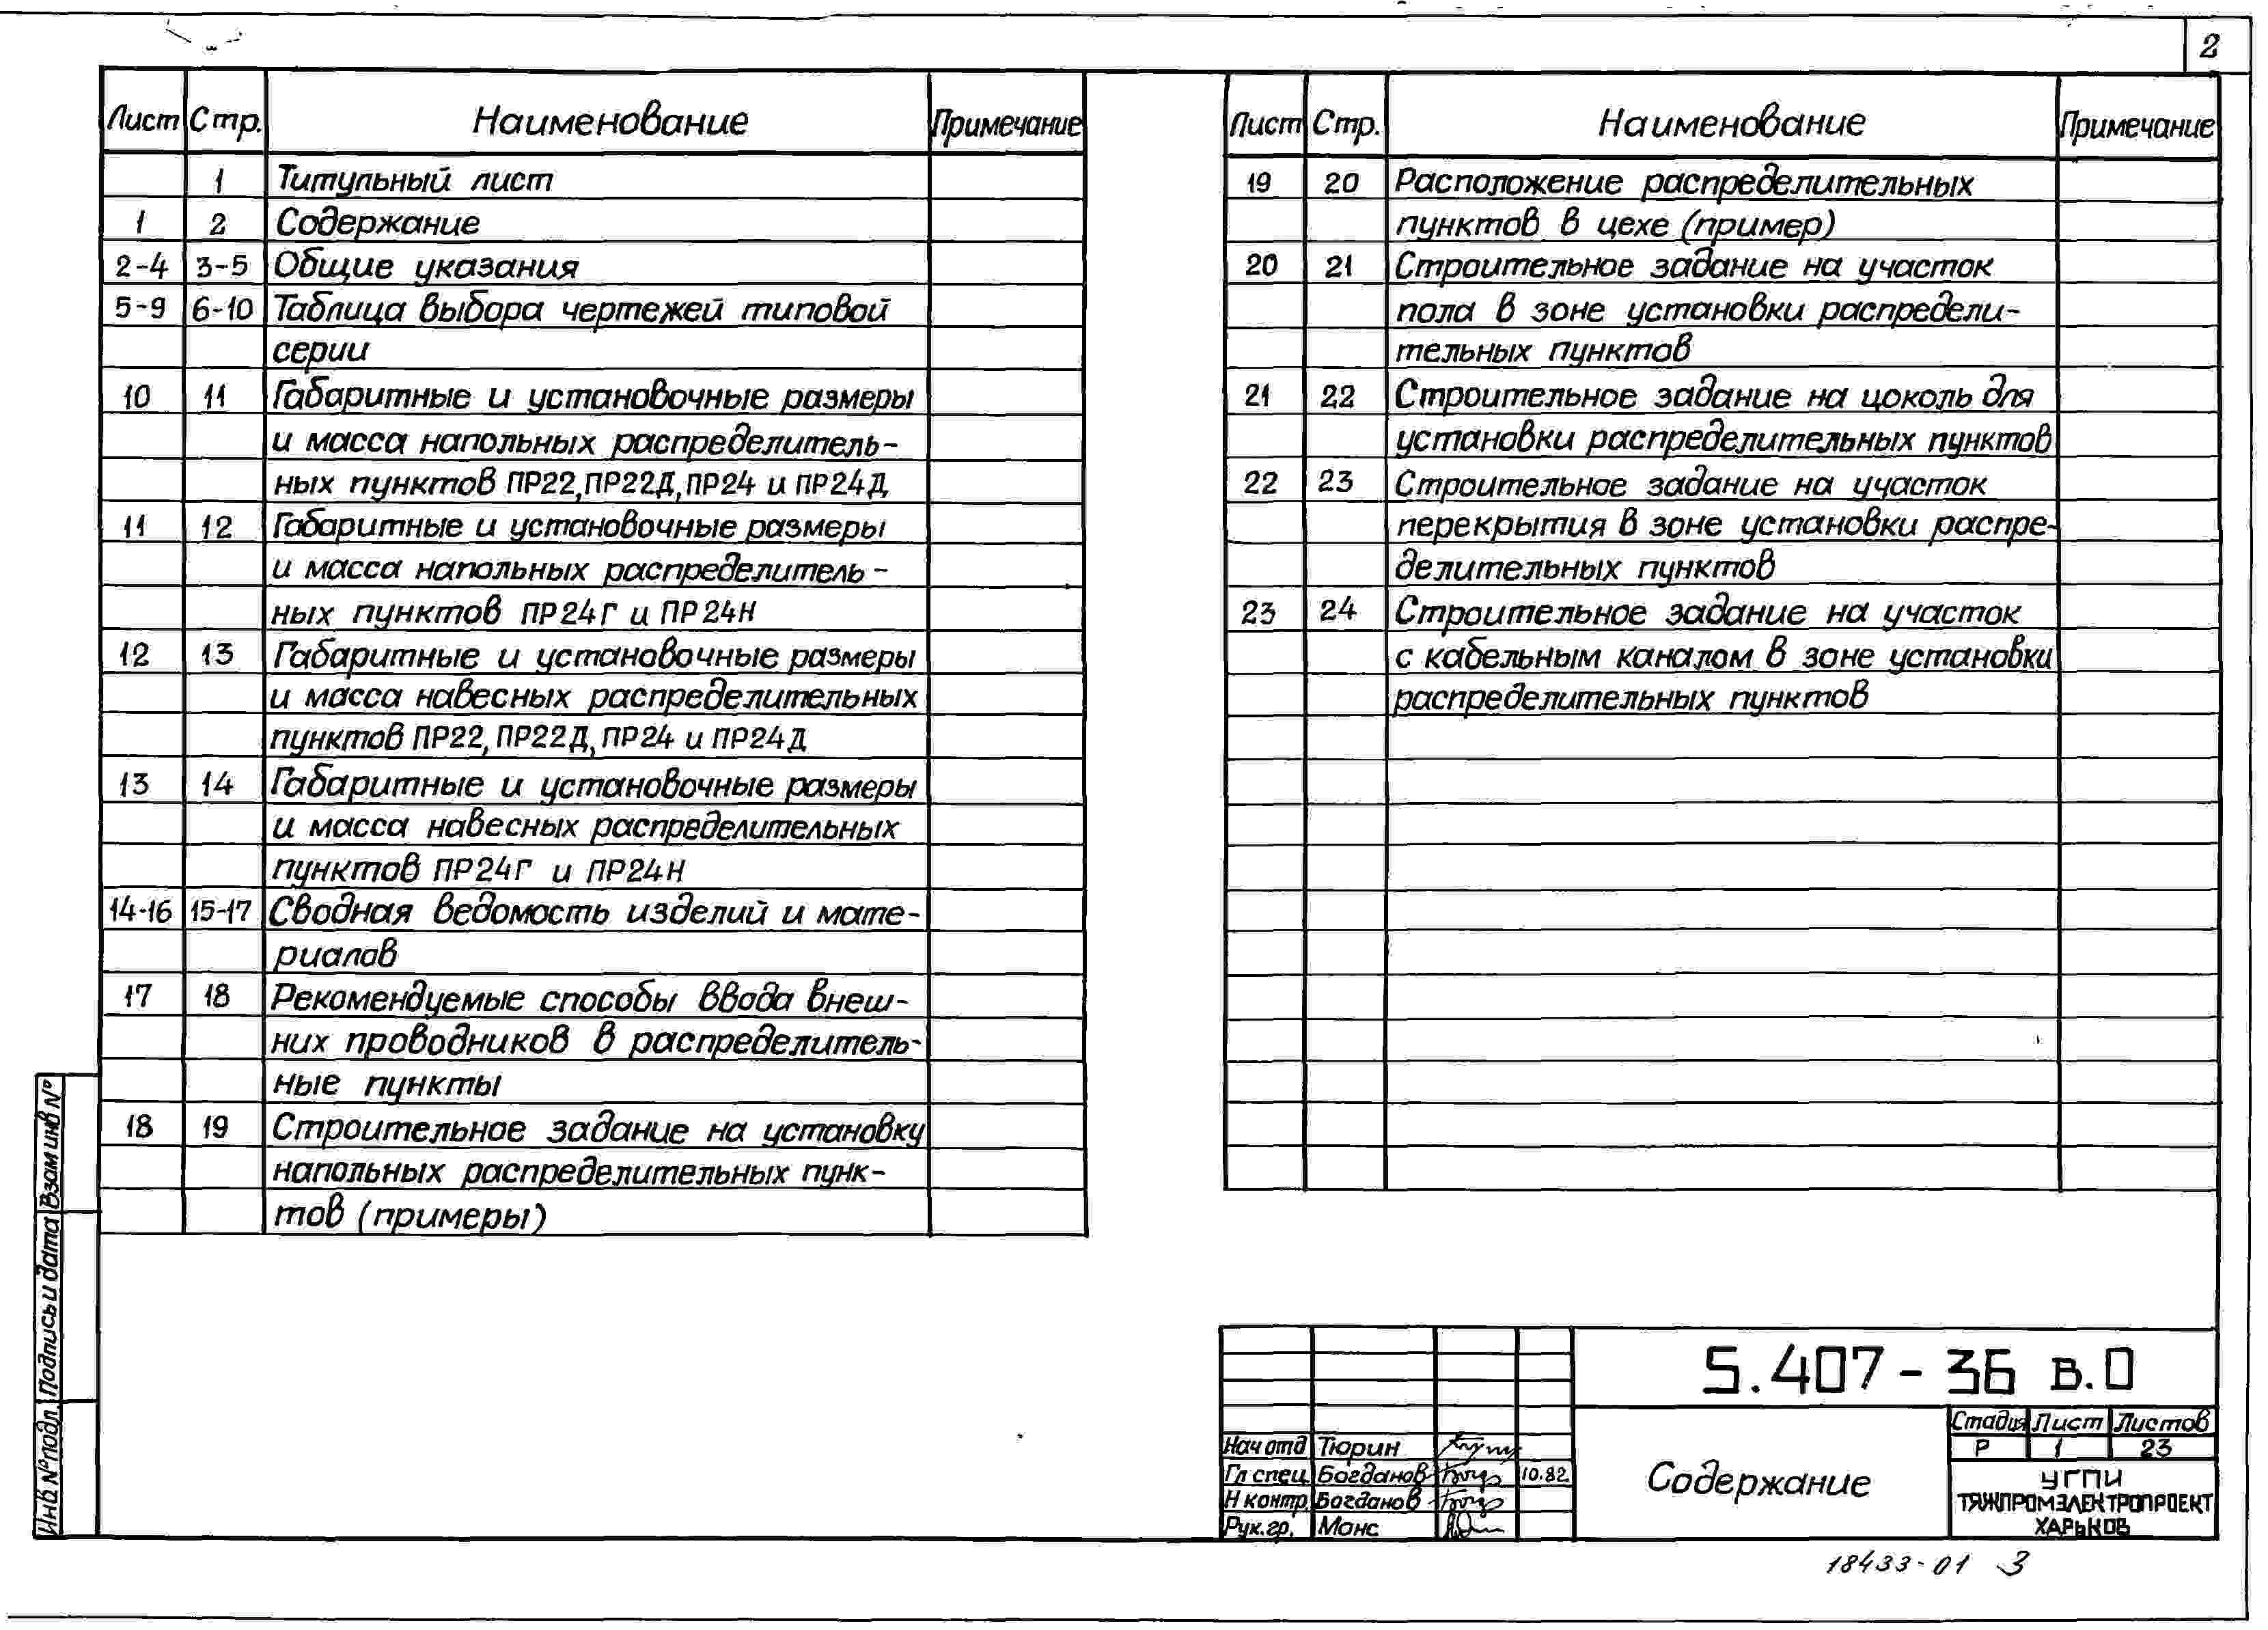 2
Лист Стр. Наименование Примечание
1 Титульный лист
1 2 Содержание
2-4 3-5 Общие указания
5-9 6-10 Таблица выбора чертежей типовой
серии
10 11 Габаритные и установочные размеры
и масса напольных распределитель-
ных пунктов ПР22, ПР22Д, ПР24 и ПР24Д
11 12 Габаритные и установочные размеры
и масса напольных распределитель-
ных пунктов ПР24Г и ПР24Н
12 13 Габаритные и установочные размеры
и масса навесных распределительных
пунктов ПР22, ПР22Д, ПР24 и ПР24Д
13 14 Габаритные и установочные размеры
и масса навесных распределительных
пунктов ПР24Г и ПР24Н
14-16 15-17 Сводная ведомость изделий и мате-
риалов
17 18 Рекомендуемые способы ввода внеш-
них проводников в распределитель-
ные пункты
18 19 Строительное задание на установку
напольных распределительных пунк-
тов (примеры)
Лист Стр. Наименование Примечание
19 20 Расположение распределительных
пунктов в цехе (пример)
20 21 Строительное задание на участок
пола в зоне установки распредели-
тельных пунктов
21 22 Строительное задание на цоколь для
установки распределительных пунктов
22 23 Строительное задание на участок
перекрытия в зоне установки распре-
делительных пунктов
23 24 Строительное задание на участок
с кабельным каналом в зоне установки
распределительных пунктов
Инв № подл. Подпись и дата Взам инв №
5.407-36 в.0
Нач отд Тюрин
Гл спец Богданов 10.82
Н контр. Богданов
Рук.гр. Манс
Содержание
Стадия Лист Листов
Р 1 23
УГПИ
ТЯЖПРОМЭЛЕКТРОПРОЕКТ
ХАРЬКОВ
18433-01 3